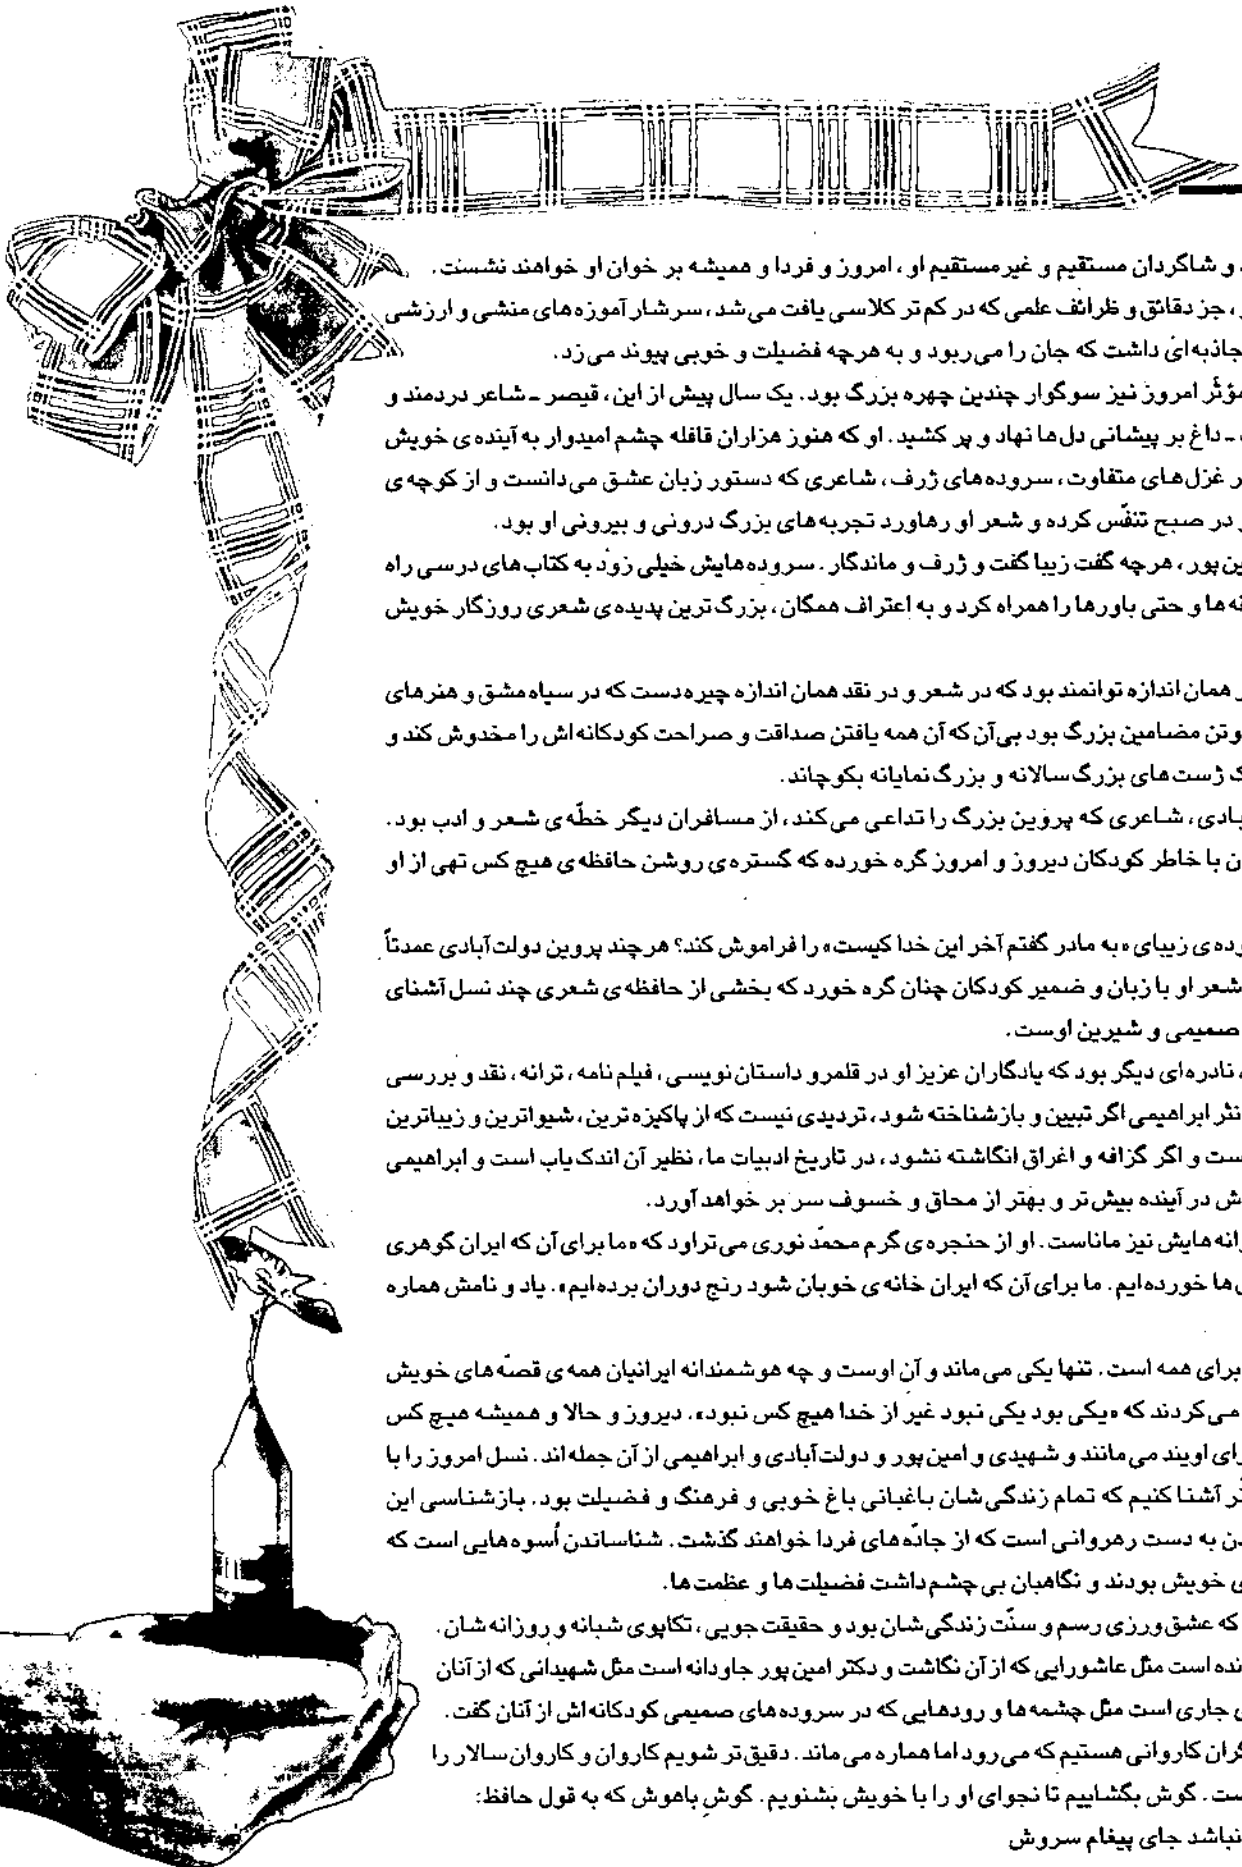 و شاگردان مستقیم و غیرمستقیم او ، امروز و فردا و همیشه بر خوان او خواهند نشست .
، جز دقائق و ظرائف علمی که در کم‌تر کلاسی یافت می‌شد ، سرشار آموزه‌های منشی و ارزشی
جاذبه‌ای داشت که جان را می‌ربود و به هرچه فضیلت و خوبی پیوند می‌زد .
مؤثّر امروز نیز سوگوار چندین چهره بزرگ بود . یک سال پیش از این ، قیصر ـ شاعر دردمند و
ـ داغ بر پیشانی دل‌ها نهاد و پر کشید . او که هنوز هزاران قافله چشم امیدوار به آینده‌ی خویش
غزل‌های متفاوت ، سروده‌های ژرف ، شاعری که دستور زبان عشق می‌دانست و از کوچه‌ی
در صبح تنفّس کرده و شعر او رهاورد تجربه‌های بزرگ درونی و بیرونی او بود .
ین‌پور ، هرچه گفت زیبا گفت و ژرف و ماندگار . سروده‌هایش خیلی زود به کتاب‌های درسی راه
ه‌ها و حتی باورها را همراه کرد و به اعتراف همگان ، بزرگ‌ترین پدیده‌ی شعری روزگار خویش
همان اندازه توانمند بود که در شعر و در نقد همان اندازه چیره‌دست که در سیاه مشق و هنرهای
مضامین بزرگ بود بی‌آن که آن همه یافتن صداقت و صراحت کودکانه‌اش را مخدوش کند و
ژست‌های بزرگ‌سالانه و بزرگ‌نمایانه بکوچاند .
بادی ، شاعری که پروین بزرگ را تداعی می‌کند ، از مسافران دیگر خطّه‌ی شعر و ادب بود .
با خاطر کودکان دیروز و امروز گره خورده که گستره‌ی روشن حافظه‌ی هیچ کس تهی از او
ده‌ی زیبای «به مادر گفتم آخر این خدا کیست» را فراموش کند؟ هرچند پروین دولت‌آبادی عمدتاً
شعر او با زبان و ضمیر کودکان چنان گره خورد که بخشی از حافظه‌ی شعری چند نسل آشنای
صمیمی و شیرین اوست .
، نادره‌ای دیگر بود که یادگاران عزیز او در قلمرو داستان‌نویسی ، فیلم‌نامه ، ترانه ، نقد و بررسی
نثر ابراهیمی اگر تبیین و بازشناخته شود ، تردیدی نیست که از پاکیزه‌ترین ، شیواترین و زیباترین
ست و اگر گزافه و اغراق انگاشته نشود ، در تاریخ ادبیات ما ، نظیر آن اندک‌یاب است و ابراهیمی
ش در آینده بیش‌تر و بهتر از محاق و خسوف سر بر خواهد آورد .
انه‌هایش نیز ماناست . او از حنجره‌ی گرم محمّد نوری می‌تراود که «ما برای آن که ایران گوهری
ها خورده‌ایم . ما برای آن که ایران خانه‌ی خوبان شود رنج دوران برده‌ایم» . یاد و نامش هماره
برای همه است . تنها یکی می‌ماند و آن اوست و چه هوشمندانه ایرانیان همه‌ی قصّه‌های خویش
می‌کردند که «یکی بود یکی نبود غیر از خدا هیچ کس نبود» . دیروز و حالا و همیشه هیچ کس
رای اویند می‌مانند و شهیدی و امین‌پور و دولت‌آبادی و ابراهیمی از آن جمله‌اند . نسل امروز را با
تر آشنا کنیم که تمام زندگی‌شان باغبانی باغ خوبی و فرهنگ و فضیلت بود . بازشناسی این
دن به دست رهروانی است که از جادّه‌های فردا خواهند گذشت . شناساندن اُسوه‌هایی است که
ی خویش بودند و نگاهبان بی‌چشم‌داشت فضیلت‌ها و عظمت‌ها .
که عشق‌ورزی رسم و سنّت زندگی‌شان بود و حقیقت‌جویی ، تکاپوی شبانه و روزانه‌شان .
نده است مثل عاشورایی که از آن نگاشت و دکتر امین‌پور جاودانه است مثل شهیدانی که از آنان
جاری است مثل چشمه‌ها و رودهایی که در سروده‌های صمیمی کودکانه‌اش از آنان گفت .
گران کاروانی هستیم که می‌رود اما هماره می‌ماند . دقیق‌تر شویم کاروان و کاروان‌سالار را
ست . گوش بگشاییم تا نجوای او را با خویش بشنویم . گوش باهوش که به قول حافظ:
نباشد جای پیغام سروش